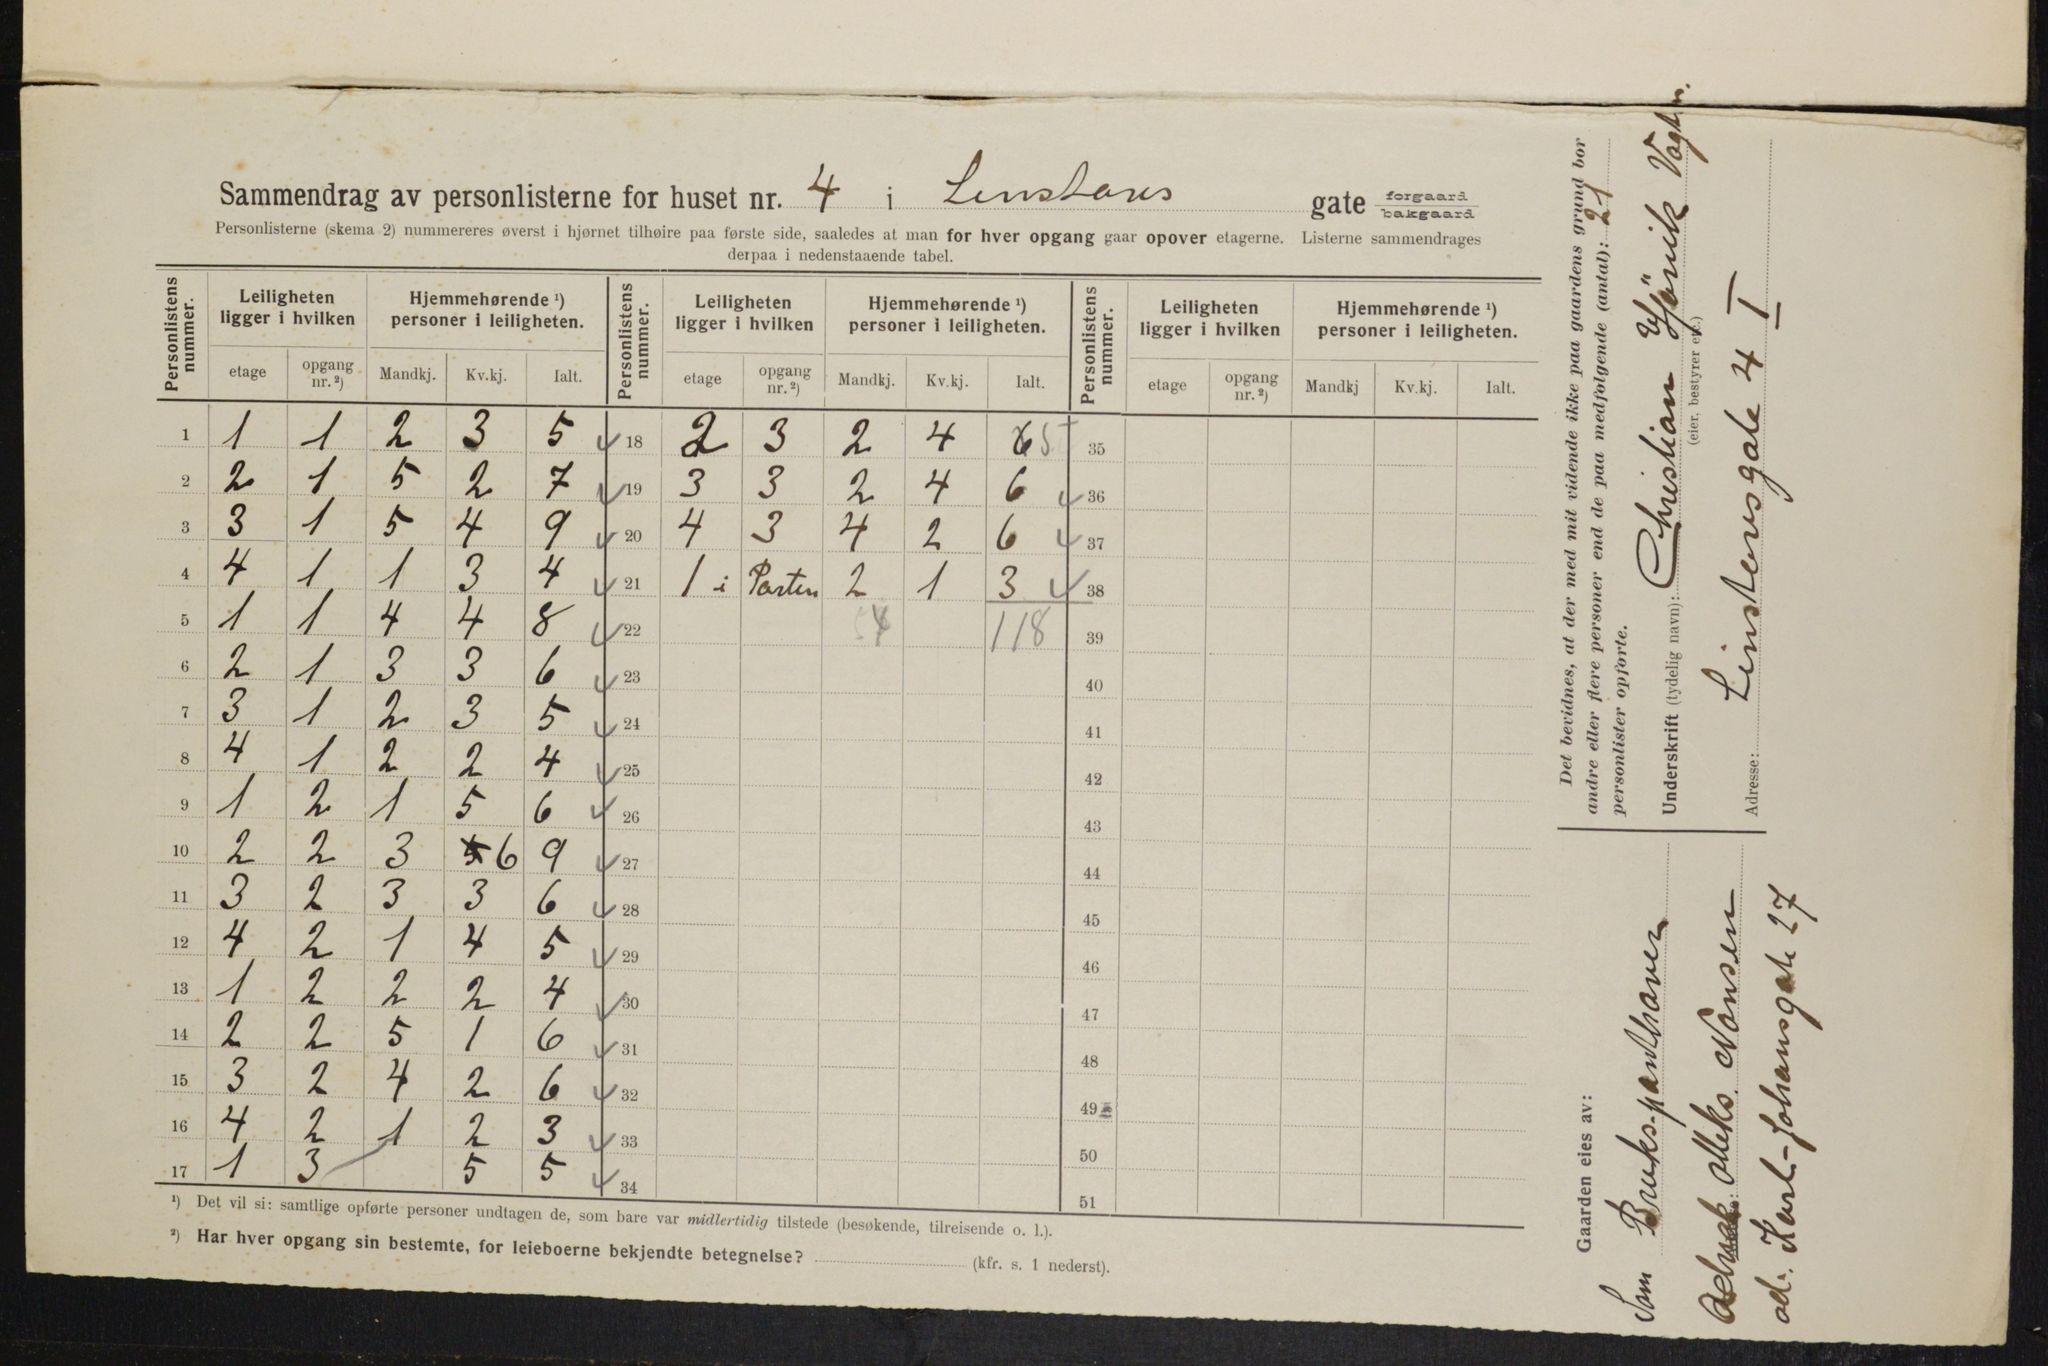 Sammendrag av personlisterne for huset nr. 4 i Linstows gate forgaard bakgaard
Personlisterne (skema 2) nummereres øverst i hjørnet tilhøire paa første side, saaledes at man for hver opgang gaar opover etagerne. Listerne sammendrages
derpaa i nedenstaaende tabel.
Personlistens nummer. Leiligheten ligger i hvilken Hjemmehørende ¹) personer i leiligheten. Personlistens nummer. Leiligheten ligger i hvilken Hjemmehørende ¹) personer i leiligheten. Personlistens nummer. Leiligheten ligger i hvilken Hjemmehørende ¹) personer i leiligheten.
etage opgang nr. ²) Mandkj. Kv.kj. Ialt. etage opgang nr. ²) Mandkj. Kv.kj. Ialt. etage opgang nr. ²) Mandkj Kv.kj. Ialt.
1 1 1 2 3 5 18 2 3 2 4 6 5 35
2 2 1 5 2 7 19 3 3 2 4 6 36
3 3 1 5 4 9 20 4 3 4 2 6 37
4 4 1 1 3 4 21 1 i Porten 2 1 3 38
5 1 1 4 4 8 22 54 118 39
6 2 1 3 3 6 23 40
7 3 1 2 3 5 24 41
8 4 1 2 2 4 25 42
9 1 2 1 5 6 26 43
10 2 2 3 6 9 27 44
11 3 2 3 3 6 28 45
12 4 2 1 4 5 29 46
13 1 2 2 2 4 30 47
14 2 2 5 1 6 31 48
15 3 2 4 2 6 32 49
16 4 2 1 2 3 33 50
17 1 3 5 5 34 51
¹) Det vil si: samtlige opførte personer undtagen de, som bare var midlertidig tilstede (besøkende, tilreisende o. l.).
²) Har hver opgang sin bestemte, for leieboerne bekjendte betegnelse? (kfr. s. 1 nederst).
Det bevidnes, at der med mit vidende ikke paa gaardens grund bor
andre eller flere personer end de paa medfølgende (antal): 21
personlister opførte.
Underskrift (tydelig navn): Christian Vogt.
(eier, bestyrer etc.)
Adresse: Linstowsgate 4 I
Gaarden eies av:
Som Bruks-panthaver
Nansen
ad. Karl-Johansgate 27